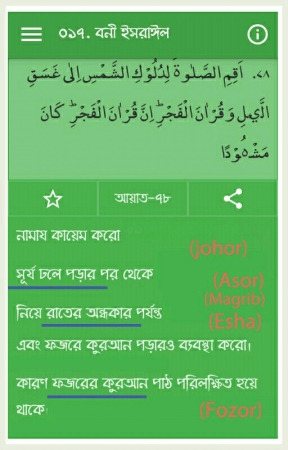 ০১৭. বনী ইসরাঈল
٧٨. اَقِمِ الصَّلٰوةَ لِدُلُوْكِ الشَّمْسِ اِلٰى غَسَقِ
الَّيْلِ وَ قُرْاٰنَ الْفَجْرِؕ اِنَّ قُرْاٰنَ الْفَجْرِؕ كَانَ
مَشْهُوْدًا
আয়াত-৭৮
নামায কায়েম করো
(Johor)
সূর্য ঢলে পড়ার পর থেকে
(Asor)
(Magrib)
নিয়ে রাতের অন্ধকার পর্যন্ত
(Esha)
এবং ফজরে কুরআন পড়ারও ব্যবস্থা করো।
কারণ ফজরের কুরআন পাঠ পরিলক্ষিত হয়ে
থাকে।
(Fozor)